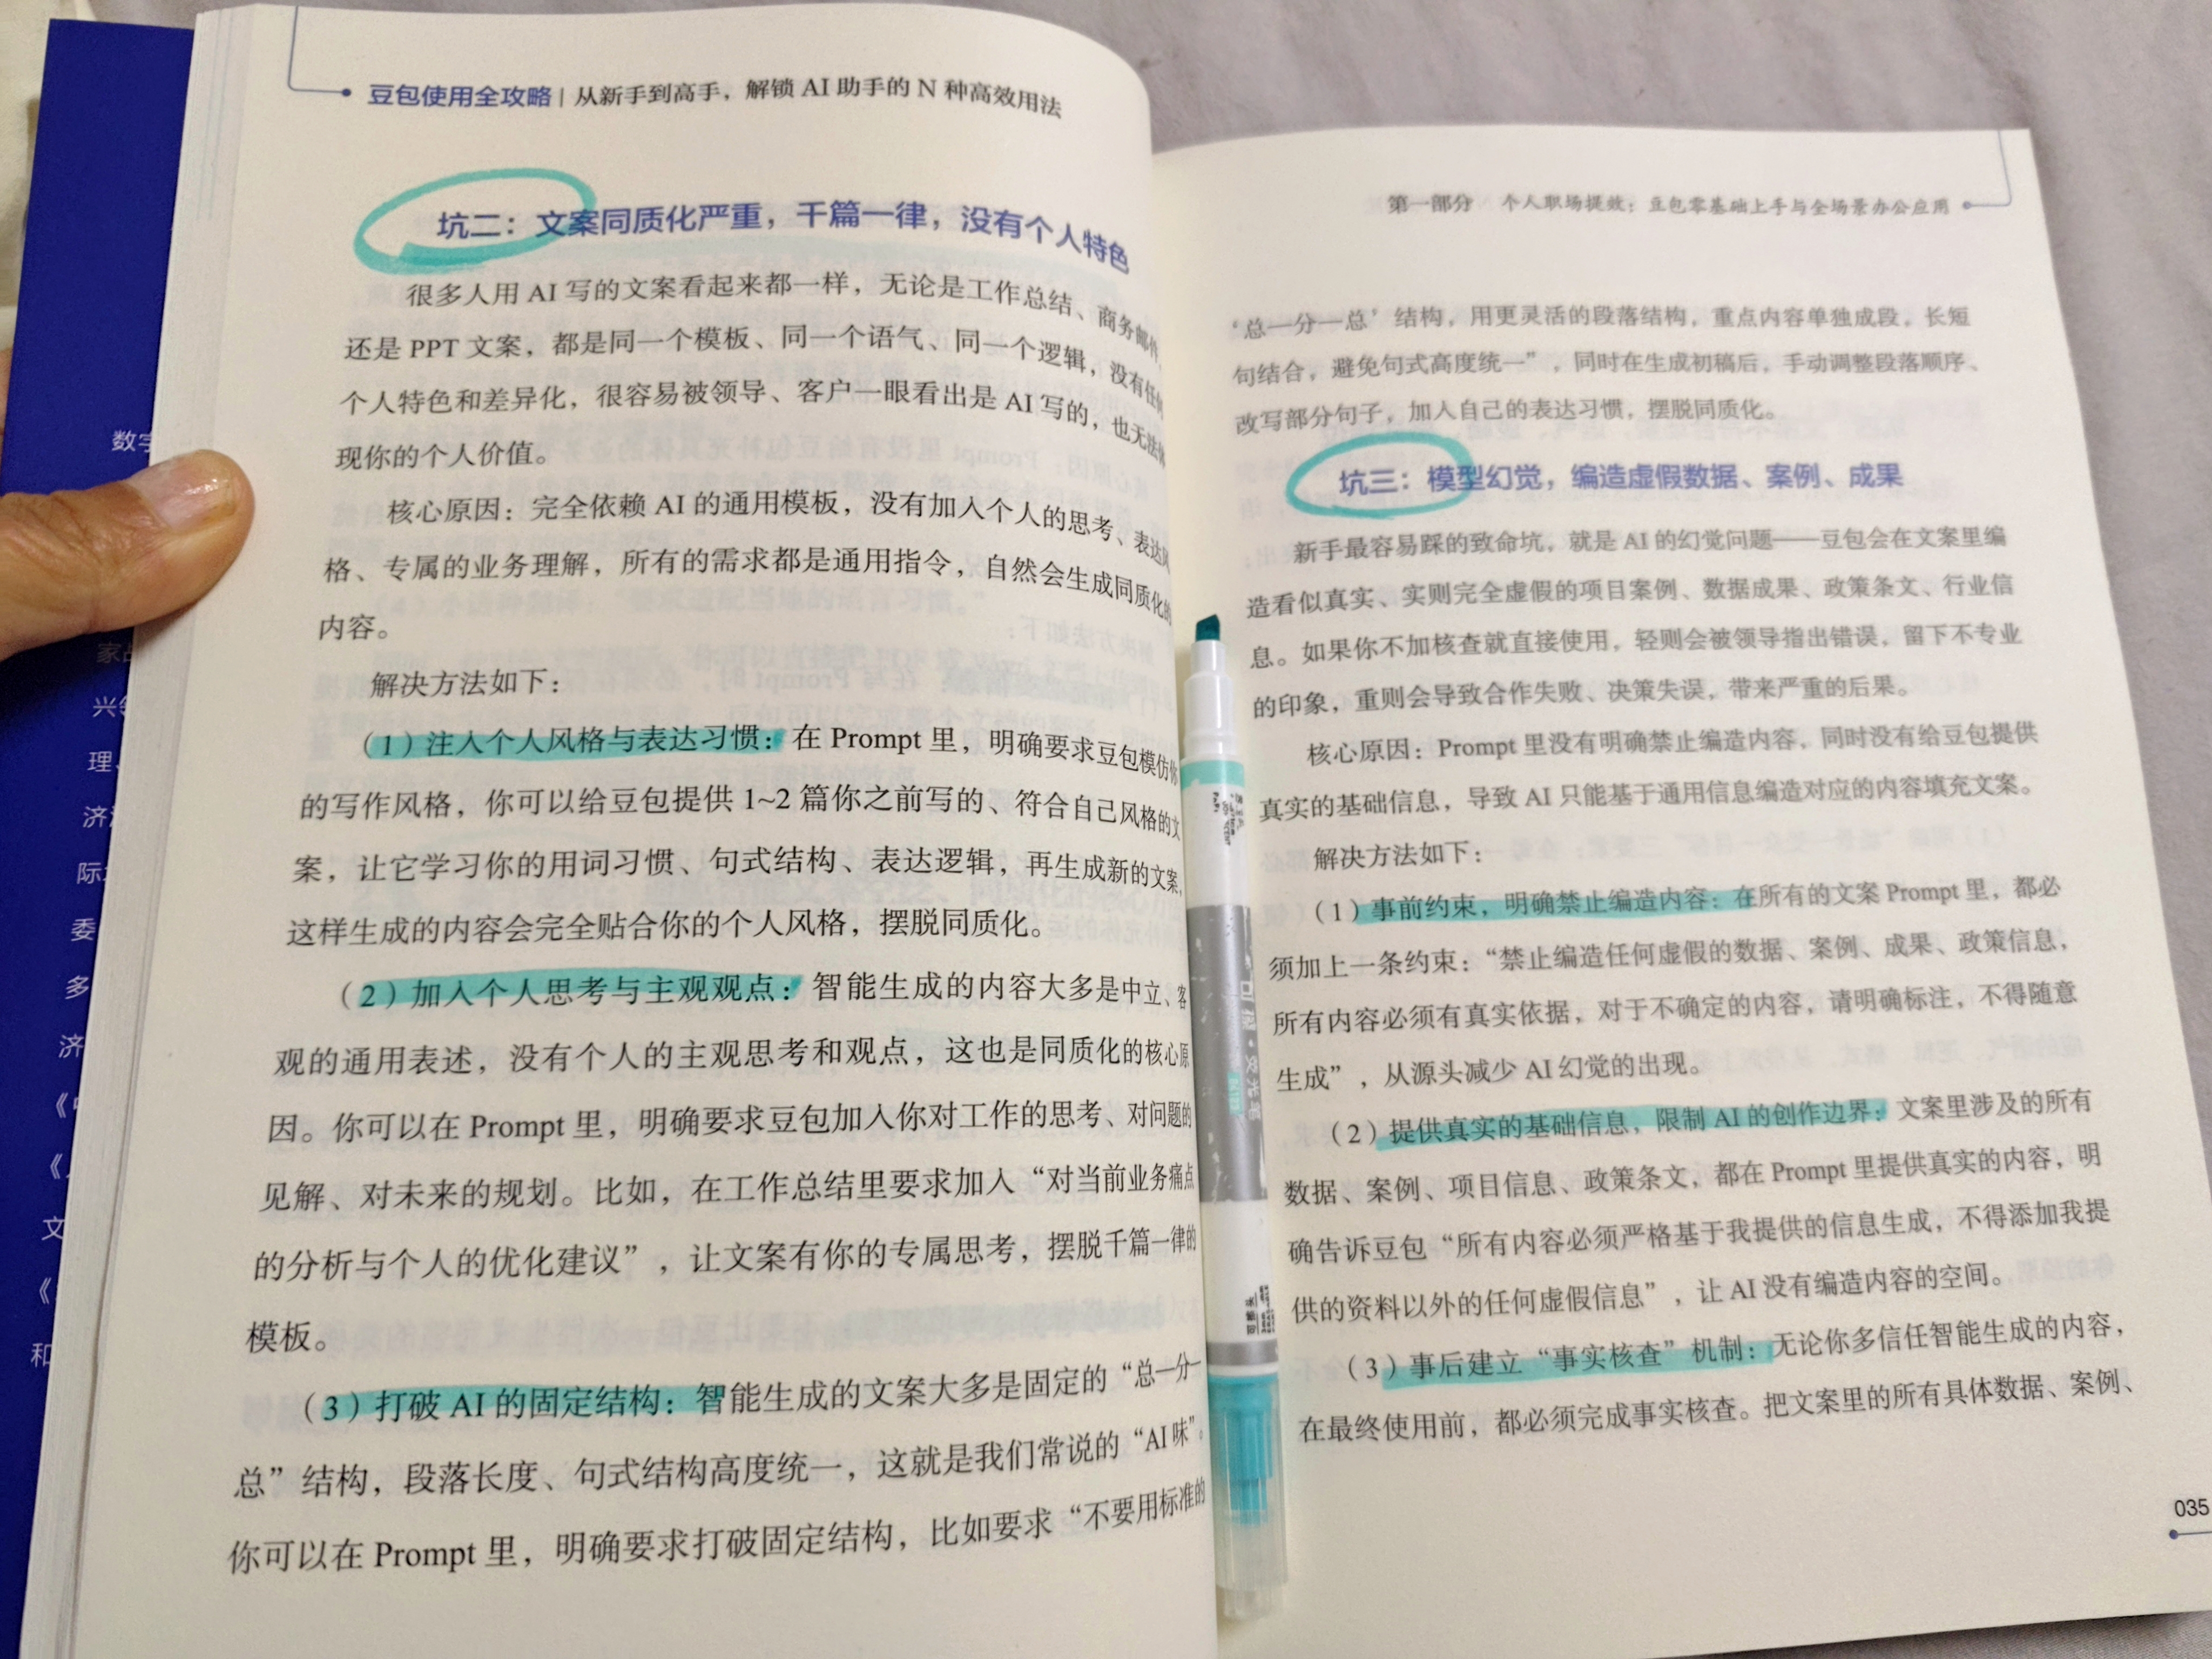 豆包使用全攻略 | 从新手到高手，解锁 AI 助手的 N 种高效用法
坑二：文案同质化严重，千篇一律，没有个人特色
很多人用 AI 写的文案看起来都一样，无论是工作总结、商务邮件，
还是 PPT 文案，都是同一个模板、同一个语气、同一个逻辑，没有任何
个人特色和差异化，很容易被领导、客户一眼看出是 AI 写的，也无法体
现你的个人价值。
核心原因：完全依赖 AI 的通用模板，没有加入个人的思考、表达风
格、专属的业务理解，所有的需求都是通用指令，自然会生成同质化的
内容。
解决方法如下：
（1）注入个人风格与表达习惯：在 Prompt 里，明确要求豆包模仿你
的写作风格，你可以给豆包提供 1~2 篇你之前写的、符合自己风格的文
案，让它学习你的用词习惯、句式结构、表达逻辑，再生成新的文案，
这样生成的内容会完全贴合你的个人风格，摆脱同质化。
（2）加入个人思考与主观观点：智能生成的内容大多是中立、客
观的通用表述，没有个人的主观思考和观点，这也是同质化的核心原
因。你可以在 Prompt 里，明确要求豆包加入你对工作的思考、对问题的
见解、对未来的规划。比如，在工作总结里要求加入“对当前业务痛点
的分析与个人的优化建议”，让文案有你的专属思考，摆脱千篇一律的
模板。
（3）打破 AI 的固定结构：智能生成的文案大多是固定的“总—分—
总”结构，段落长度、句式结构高度统一，这就是我们常说的“AI 味”。
你可以在 Prompt 里，明确要求打破固定结构，比如要求“不要用标准的
数字
家
兴
理、
济
际
委
多
济
《
《
文
《
和
第一部分 个人职场提效：豆包零基础上手与全场景办公应用
‘总—分—总’结构，用更灵活的段落结构，重点内容单独成段，长短
句结合，避免句式高度统一”，同时在生成初稿后，手动调整段落顺序、
改写部分句子，加入自己的表达习惯，摆脱同质化。
坑三：模型幻觉，编造虚假数据、案例、成果
新手最容易踩的致命坑，就是 AI 的幻觉问题——豆包会在文案里编
造看似真实、实则完全虚假的项目案例、数据成果、政策条文、行业信
息。如果你不加核查就直接使用，轻则会被领导指出错误，留下不专业
的印象，重则会导致合作失败、决策失误，带来严重的后果。
核心原因：Prompt 里没有明确禁止编造内容，同时没有给豆包提供
真实的基础信息，导致 AI 只能基于通用信息编造对应的内容填充文案。
解决方法如下：
（1）事前约束，明确禁止编造内容：在所有的文案 Prompt 里，都必
须加上一条约束：“禁止编造任何虚假的数据、案例、成果、政策信息，
所有内容必须有真实依据，对于不确定的内容，请明确标注，不得随意
生成”，从源头减少 AI 幻觉的出现。
（2）提供真实的基础信息，限制 AI 的创作边界：文案里涉及的所有
数据、案例、项目信息、政策条文，都在 Prompt 里提供真实的内容，明
确告诉豆包“所有内容必须严格基于我提供的信息生成，不得添加我提
供的资料以外的任何虚假信息”，让 AI 没有编造内容的空间。
（3）事后建立“事实核查”机制：无论你多信任智能生成的内容，
在最终使用前，都必须完成事实核查。把文案里的所有具体数据、案例、
035